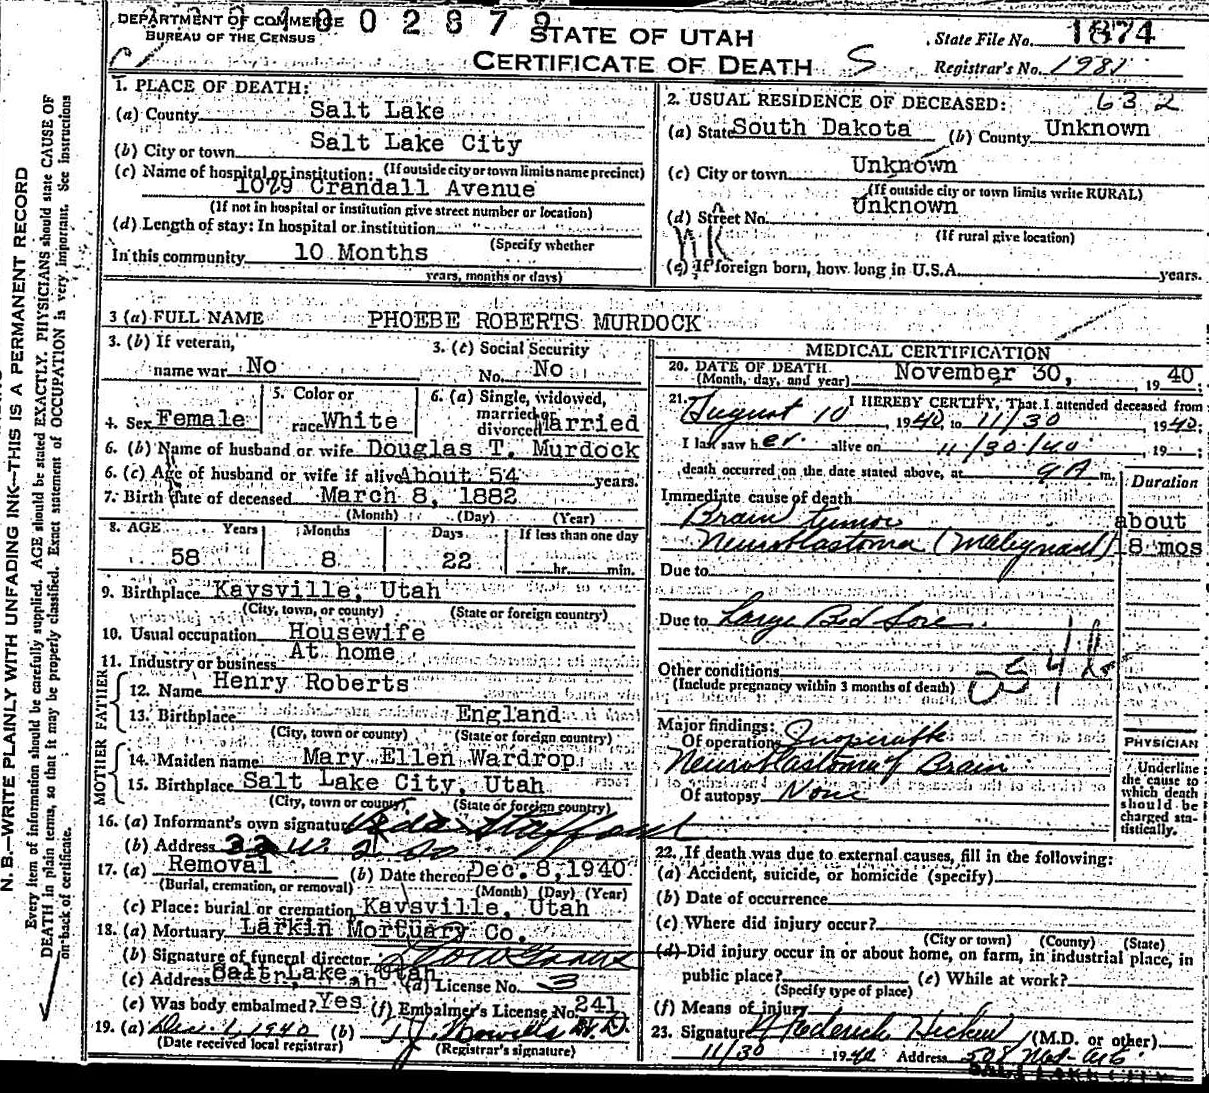 DEPARTMENT OF COMMERCE
BUREAU OF THE CENSUS
STATE OF UTAH
CERTIFICATE OF DEATH S
State File No. 1874
Registrar's No. 1981
N. B.—WRITE PLAINLY WITH UNFADING INK—THIS IS A PERMANENT RECORD
Every item of information should be carefully supplied. AGE should be stated EXACTLY. PHYSICIANS should state CAUSE OF
DEATH in plain terms, so that it may be properly classified. Exact statement of OCCUPATION is very important. See instructions
on back of certificate.
1. PLACE OF DEATH:
(a) County Salt Lake
(b) City or town Salt Lake City
(If outside city or town limits name precinct)
(c) Name of hospital or institution:
1079 Crandall Avenue
(If not in hospital or institution give street number or location)
(d) Length of stay: In hospital or institution
(Specify whether
In this community 10 Months
years, months or days)
2. USUAL RESIDENCE OF DECEASED: 632
(a) State South Dakota (b) County Unknown
(c) City or town Unknown
(If outside city or town limits write RURAL)
(d) Street No. Unknown
(If rural give location)
NR
(e) If foreign born, how long in U.S.A. years.
3 (a) FULL NAME PHOEBE ROBERTS MURDOCK
3. (b) If veteran,
name war No
3. (c) Social Security
No. No
4. Sex Female
5. Color or
race White
6. (a) Single, widowed,
married or
divorced Married
6. (b) Name of husband or wife Douglas T. Murdock
6. (c) Age of husband or wife if alive About 54 years.
7. Birth date of deceased March 8, 1882
(Month) (Day) (Year)
8. AGE Years Months Days If less than one day
58 8 22 hr. min.
9. Birthplace Kaysville, Utah
(City, town, or county) (State or foreign country)
10. Usual occupation Housewife
11. Industry or business At home
FATHER
12. Name Henry Roberts
13. Birthplace England
(City, town or county) (State or foreign country)
MOTHER
14. Maiden name Mary Ellen Wardrop
15. Birthplace Salt Lake City, Utah
(City, town or county) (State or foreign country)
16. (a) Informant's own signature Veda Stafford
(b) Address 32 W. 2 So
17. (a) Removal (b) Date thereof Dec. 8, 1940
(Burial, cremation, or removal) (Month) (Day) (Year)
(c) Place: burial or cremation Kaysville, Utah
18. (a) Mortuary Larkin Mortuary Co.
(b) Signature of funeral director
(c) Address Salt Lake, Utah (d) License No. 3
(e) Was body embalmed? Yes (f) Embalmer's License No. 241
19. (a) Dec. 1, 1940 (b) T J Howells M.D.
(Date received local registrar) (Registrar's signature)
MEDICAL CERTIFICATION
20. DATE OF DEATH
(Month, day, and year) November 30, 1940
21. I HEREBY CERTIFY, That I attended deceased from
August 10, 1940, to 11/30 1940;
I last saw her alive on 11/30/40, 19 ;
death occurred on the date stated above, at 9 A m.
Duration
Immediate cause of death
Brain tumor about
Neuroblastoma (Malignant) 8 mos
Due to
Due to Large Bed Sore
Other conditions
(Include pregnancy within 3 months of death)
054
Major findings:
Of operations Inoperable
Neuroblastoma of Brain
Of autopsy None
PHYSICIAN
Underline
the cause to
which death
should be
charged sta-
tistically.
22. If death was due to external causes, fill in the following:
(a) Accident, suicide, or homicide (specify)
(b) Date of occurrence
(c) Where did injury occur?
(City or town) (County) (State)
(d) Did injury occur in or about home, on farm, in industrial place, in
public place? (e) While at work?
(Specify type of place)
(f) Means of injury
23. Signature (M.D. or other)
11/30 1940 Address 508 Med. Arts.
SALT LAKE CITY